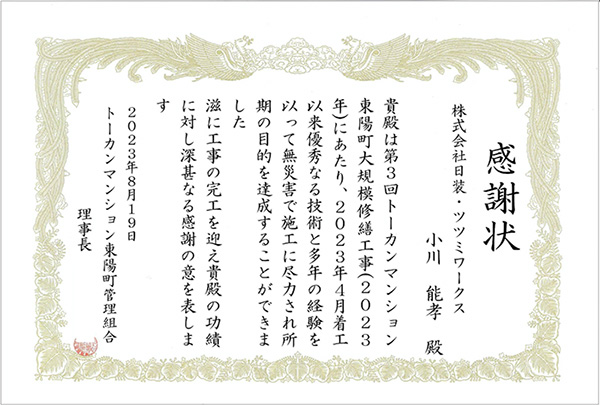 感謝状
株式会社日装・ツツミワークス
小川 能孝 殿
貴殿は第3回トーカンマンション
東陽町大規模修繕工事(2023
年)にあたり、2023年4月着工
以来優秀なる技術と多年の経験を
以って無災害で施工に尽力され所
期の目的を達成することができま
した
滋に工事の完工を迎え貴殿の功績
に対し深甚なる感謝の意を表しま
す
2023年8月19日
トーカンマンション東陽町管理組合
理事長